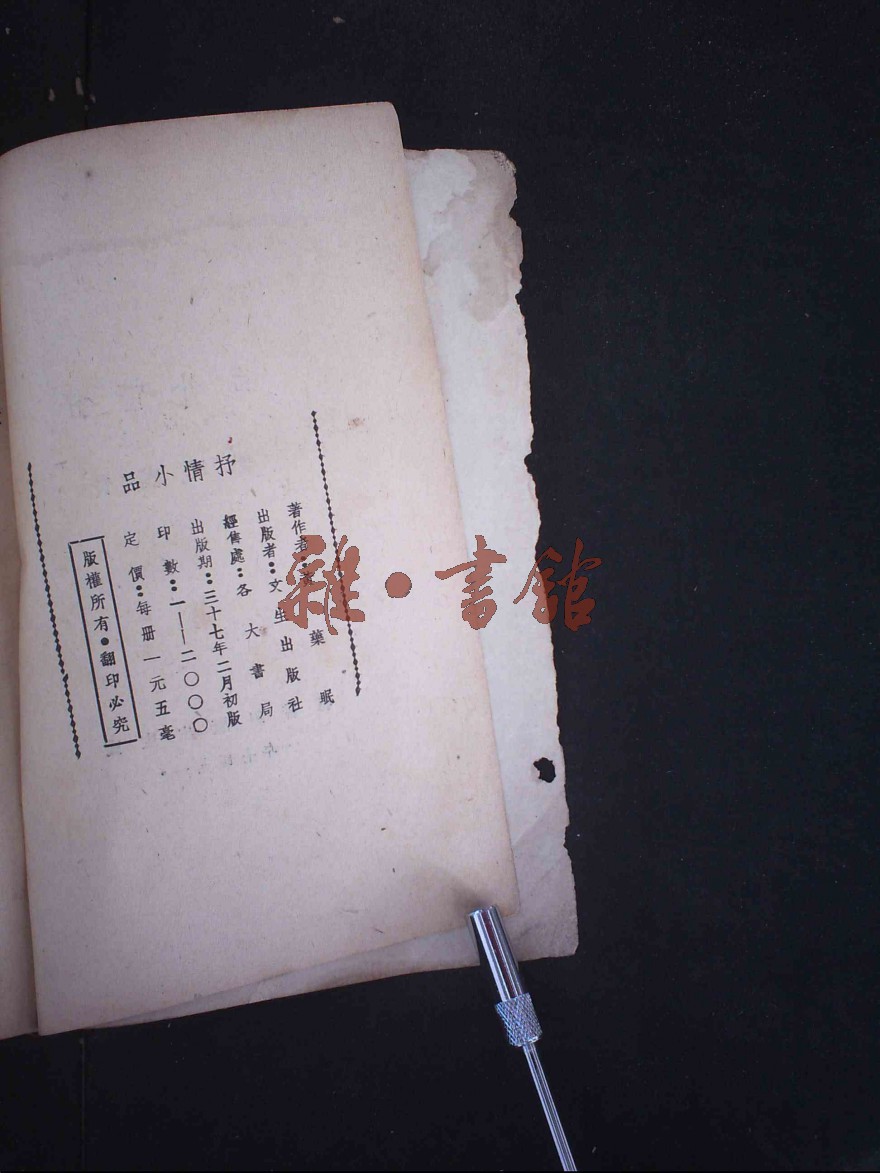 抒情小品
著作者：藥眠
出版者：文生出版社
經售處：各大書局
出版期：三十七年二月初版
印數：一——二〇〇〇
定價：每册一元五毫
版權所有●翻印必究
雜·書館